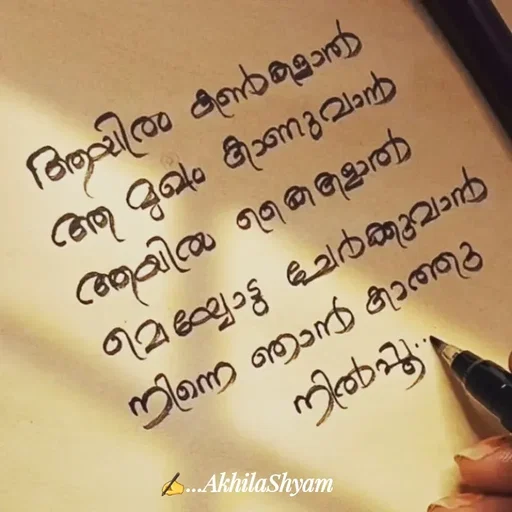 ആയിരം കൺകളാൽ
ആ മുഖം കാണുവാൻ
ആയിരം കൈകളാൽ
മെയ്യോടു ചേർക്കുവാൻ
നിന്നെ ഞാൻ കാത്തു
നിൽപ്പൂ..
✍️...AkhilaShyam